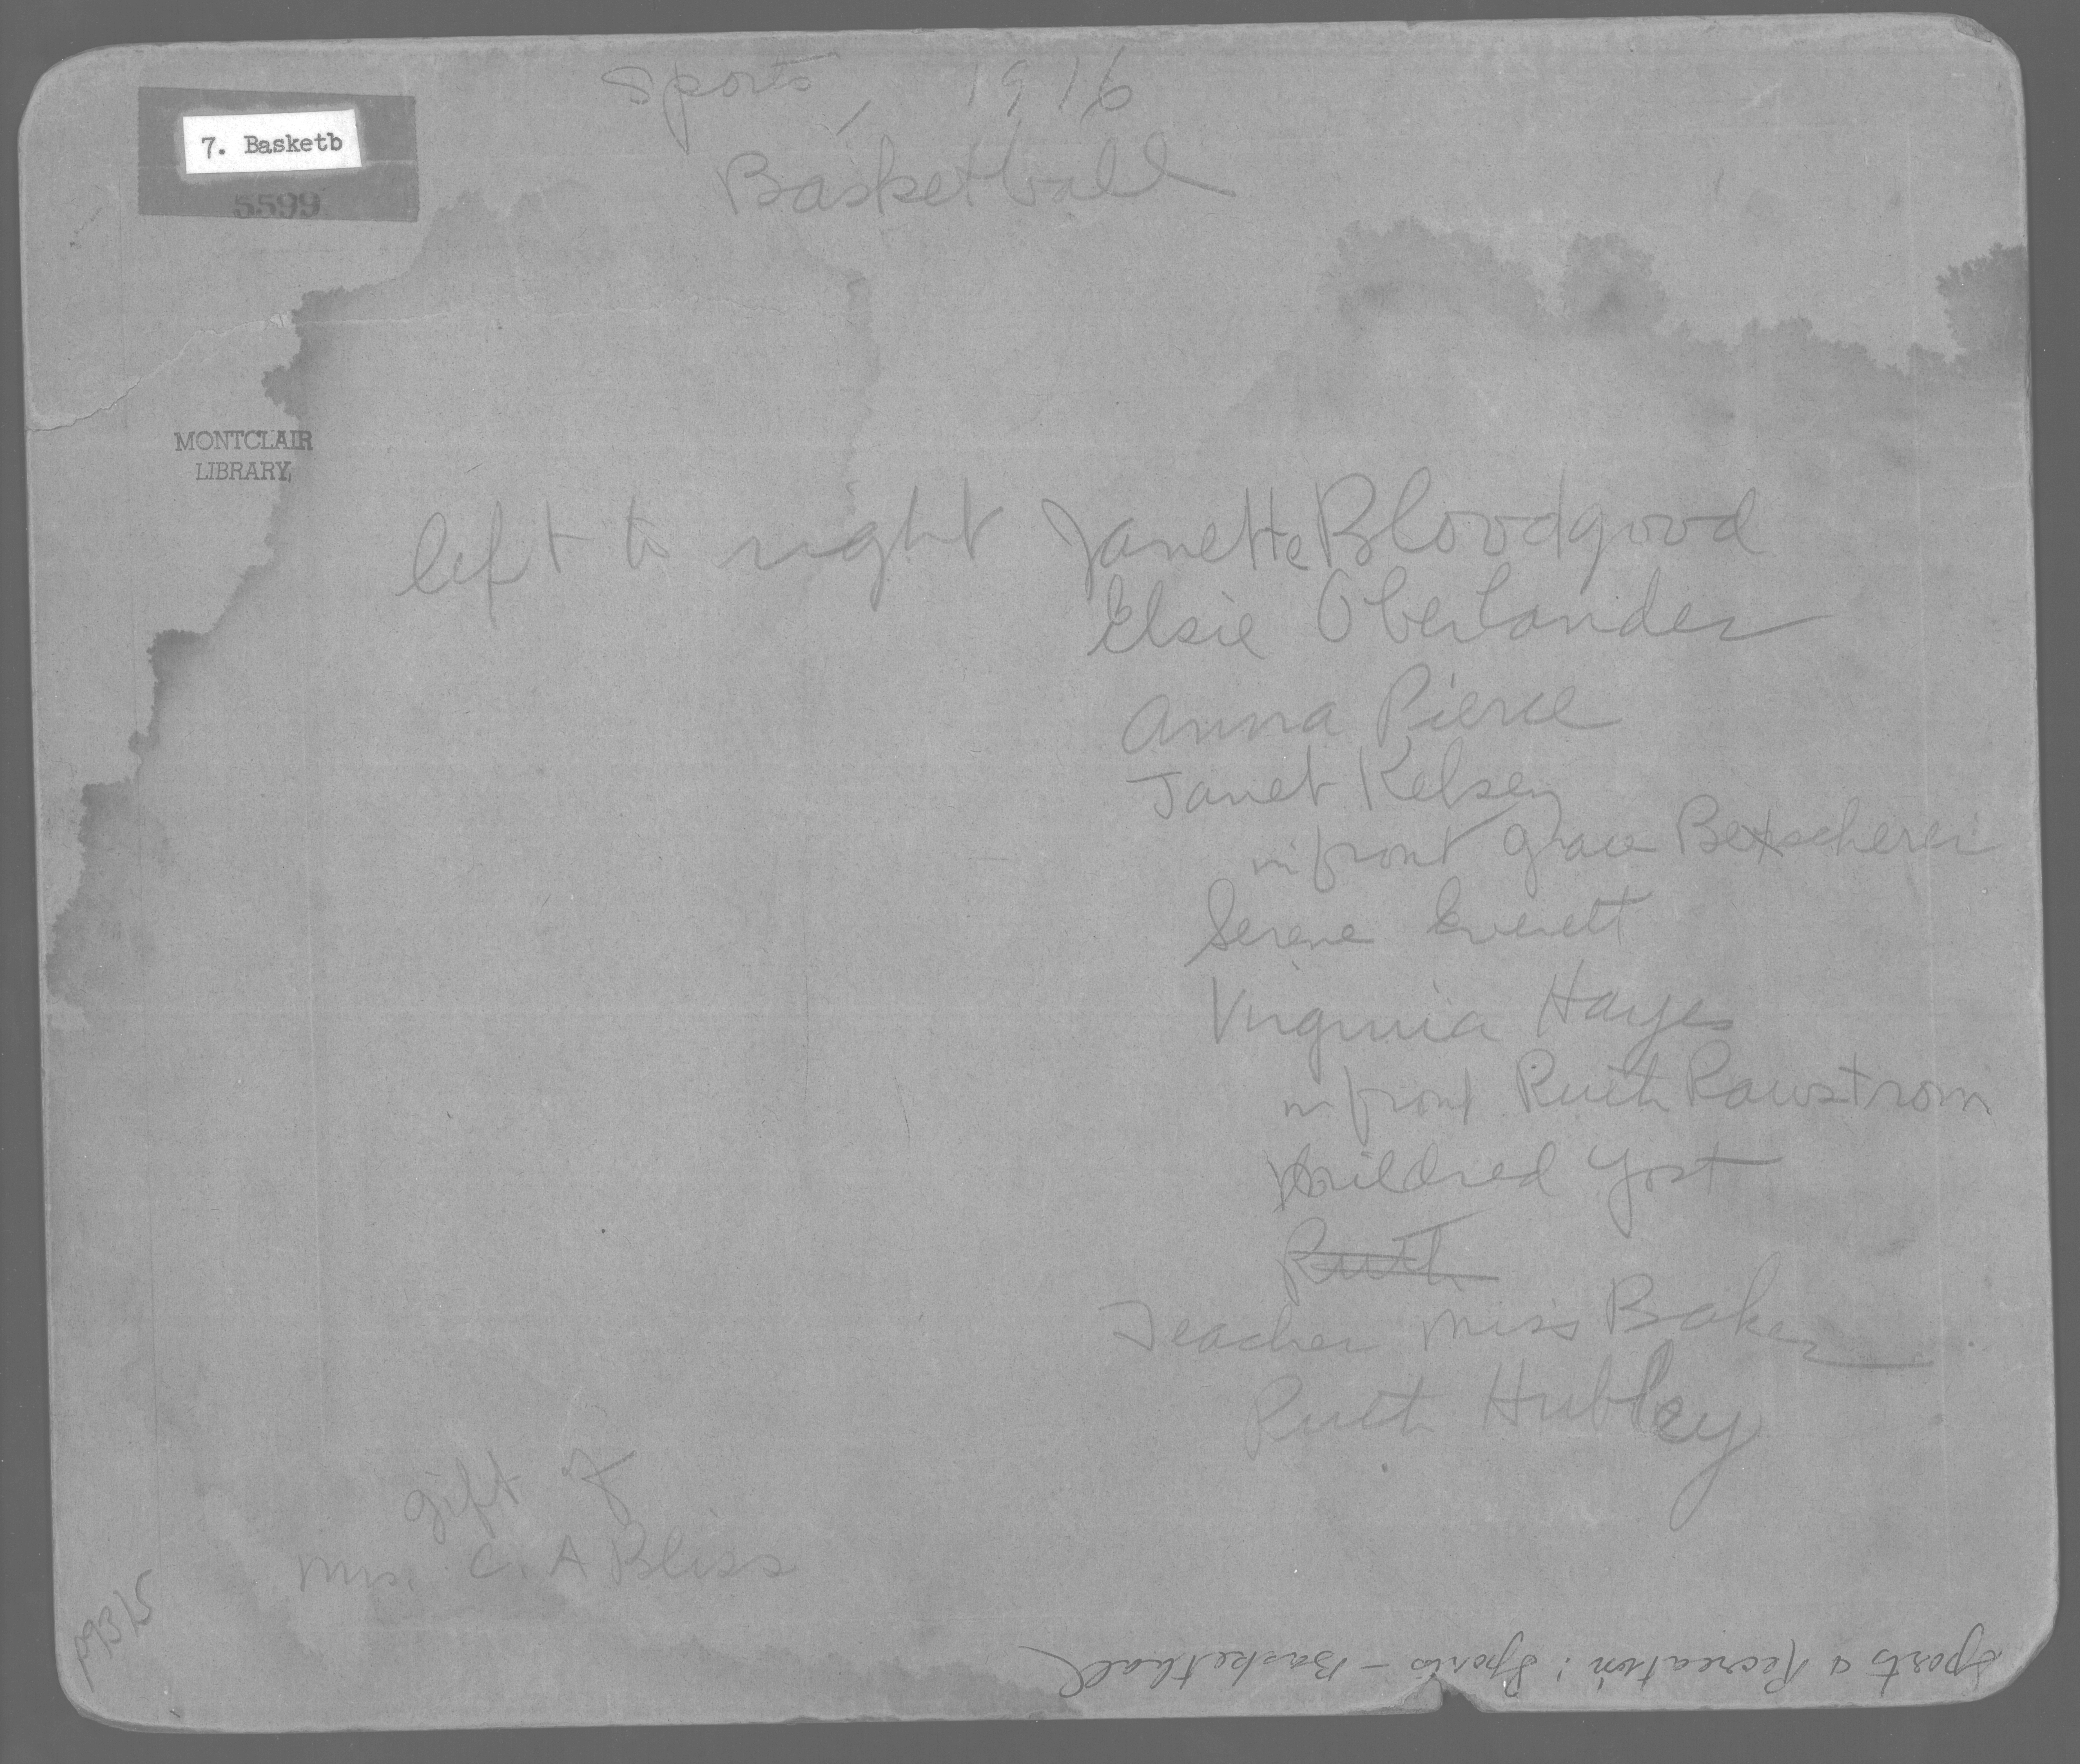 Sports, 1916
Basketball
7. Basketb
5599
MONTCLAIR
LIBRARY
left to right Janette Bloodgood
Elsie Oberlander
Anna Pierce
Janet Kelsey
in front Grace
Serene Everett
Virginia Hayes
in front Ruth Rawstrom
Mildred Yost
Ruth
Teacher Miss Baker
Ruth Hubley
gift of
Mrs. C. A Bliss
Sports & Recreation: Sports - Basketball